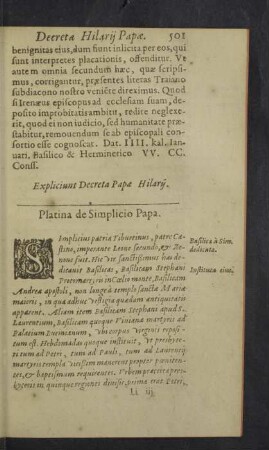 Decreta Hilarij Papæ. 501
benignitas eius, dum fiunt inlicita per eos, qui
sunt interpretes placationis, offenditur. Vt
autem omnia secundum hæc, quæ scripsi-
mus, corrigantur, præsentes literas Traiano
subdiacono nostro venire direximus. Quod
si Irenæus episcopus ad ecclesiam suam, de-
posito improbitatis ambitu, redire neglexe-
rit, quod ei non iudicio, sed humanitate præ-
stabitur, remouendum se ab episcopali con-
sortio esse cognoscat. Dat. IIII. kal. Ianu-
uari, Basilisco & Herminerico VV. CC.
Conss.
Expliciunt Decreta Papæ Hilarij.
Platina de Simplicio Papa.
Simplicius patria Tiburtinus, patre Ca-
stino, imperante Leone secundo, & Ze-
none fuit. Hic vir sanctissimus has de-
dicauit Basilicas, Basilicam Stephani
Protomart. in Cælio monte, Basilicam
Andreæ apostoli, non longe à templo sanctæ Mariæ
maioris, in qua adhuc vestigia quædam antiquitatis
apparent. Aliam item Basilicam Stephani apud S.
Laurentium, Basilicam quoque Vinianæ martyris ad
Palatium Licinianum, vbi corpus virginis reposi-
tum est. Hebdomadas quoque instituit, vt presbyte-
ri tum ad Petri, tum ad Pauli, tum ad Laurentij
martyris templa vicissim manerent propter pœniten-
tes, & baptismum requirentes. Vrbem præterea pres-
byteris in quinque regiones diuisit, prima erat Petri,
Ll iij
Basilica à Sim.
dedicata.
Instituta eius.